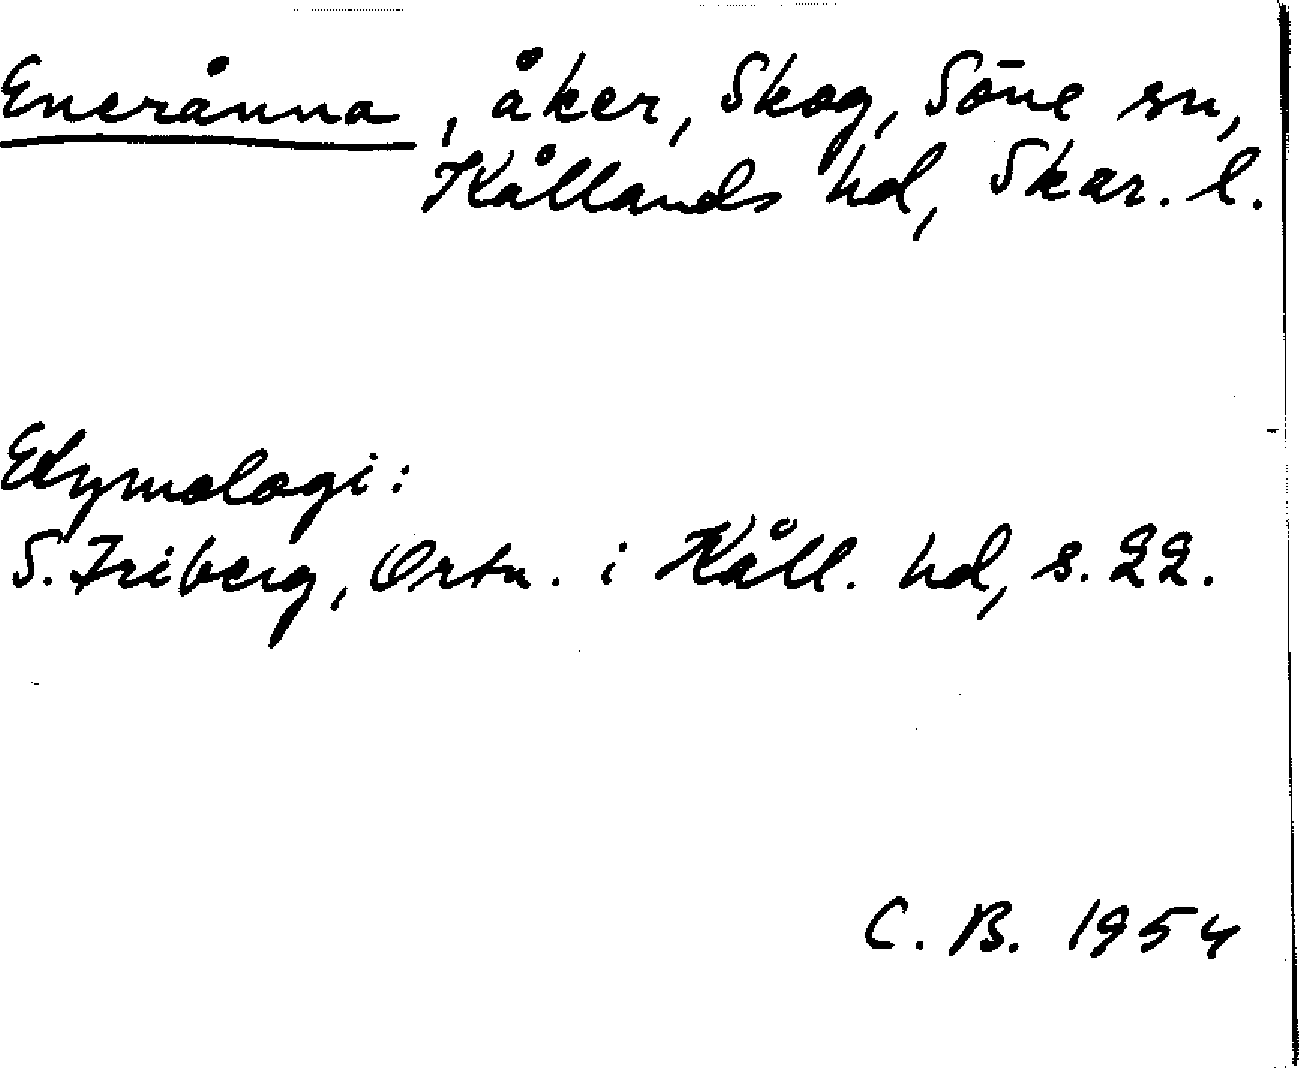 Enerånna, åker, Skog, Söne sn,
Kållands hd, Skar. l.
Etymologi:
S. Friberg, Ortn. i Kåll. hd, s. 22.
C. B. 1954